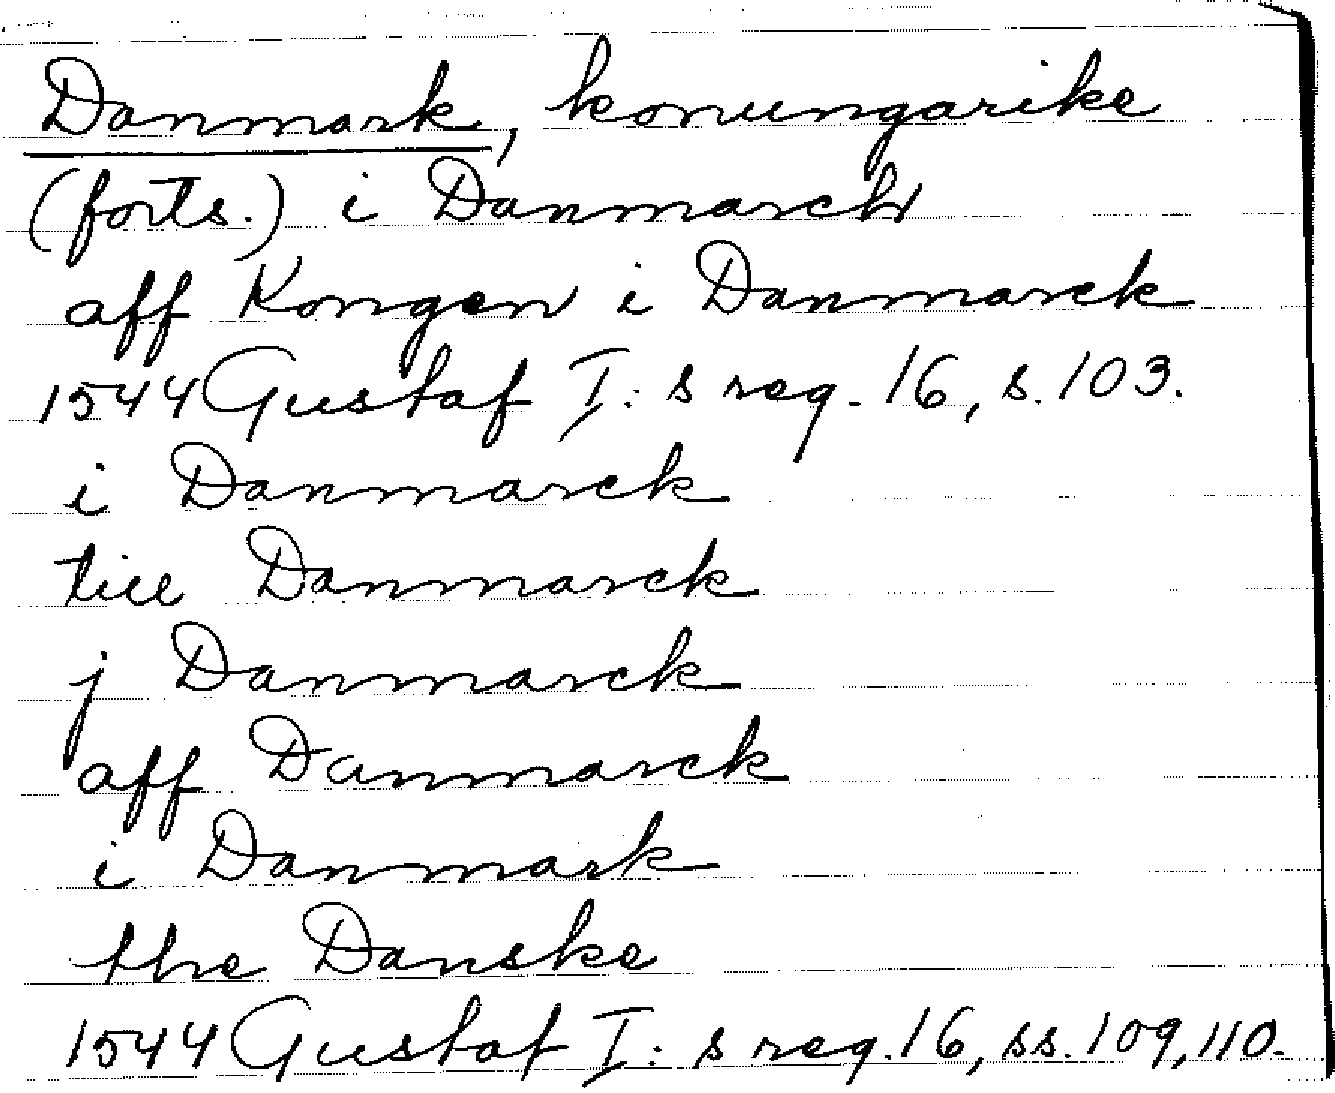 Danmark, konungarike
(forts.) i Danmarck
aff Kongen i Danmarck
1544 Gustaf I:s reg. 16, s. 103.
i Danmarck
till Danmarck
j Danmarck
aff Danmarck
i Danmark
the Danske
1544 Gustaf I:s reg. 16, ss. 109, 110.